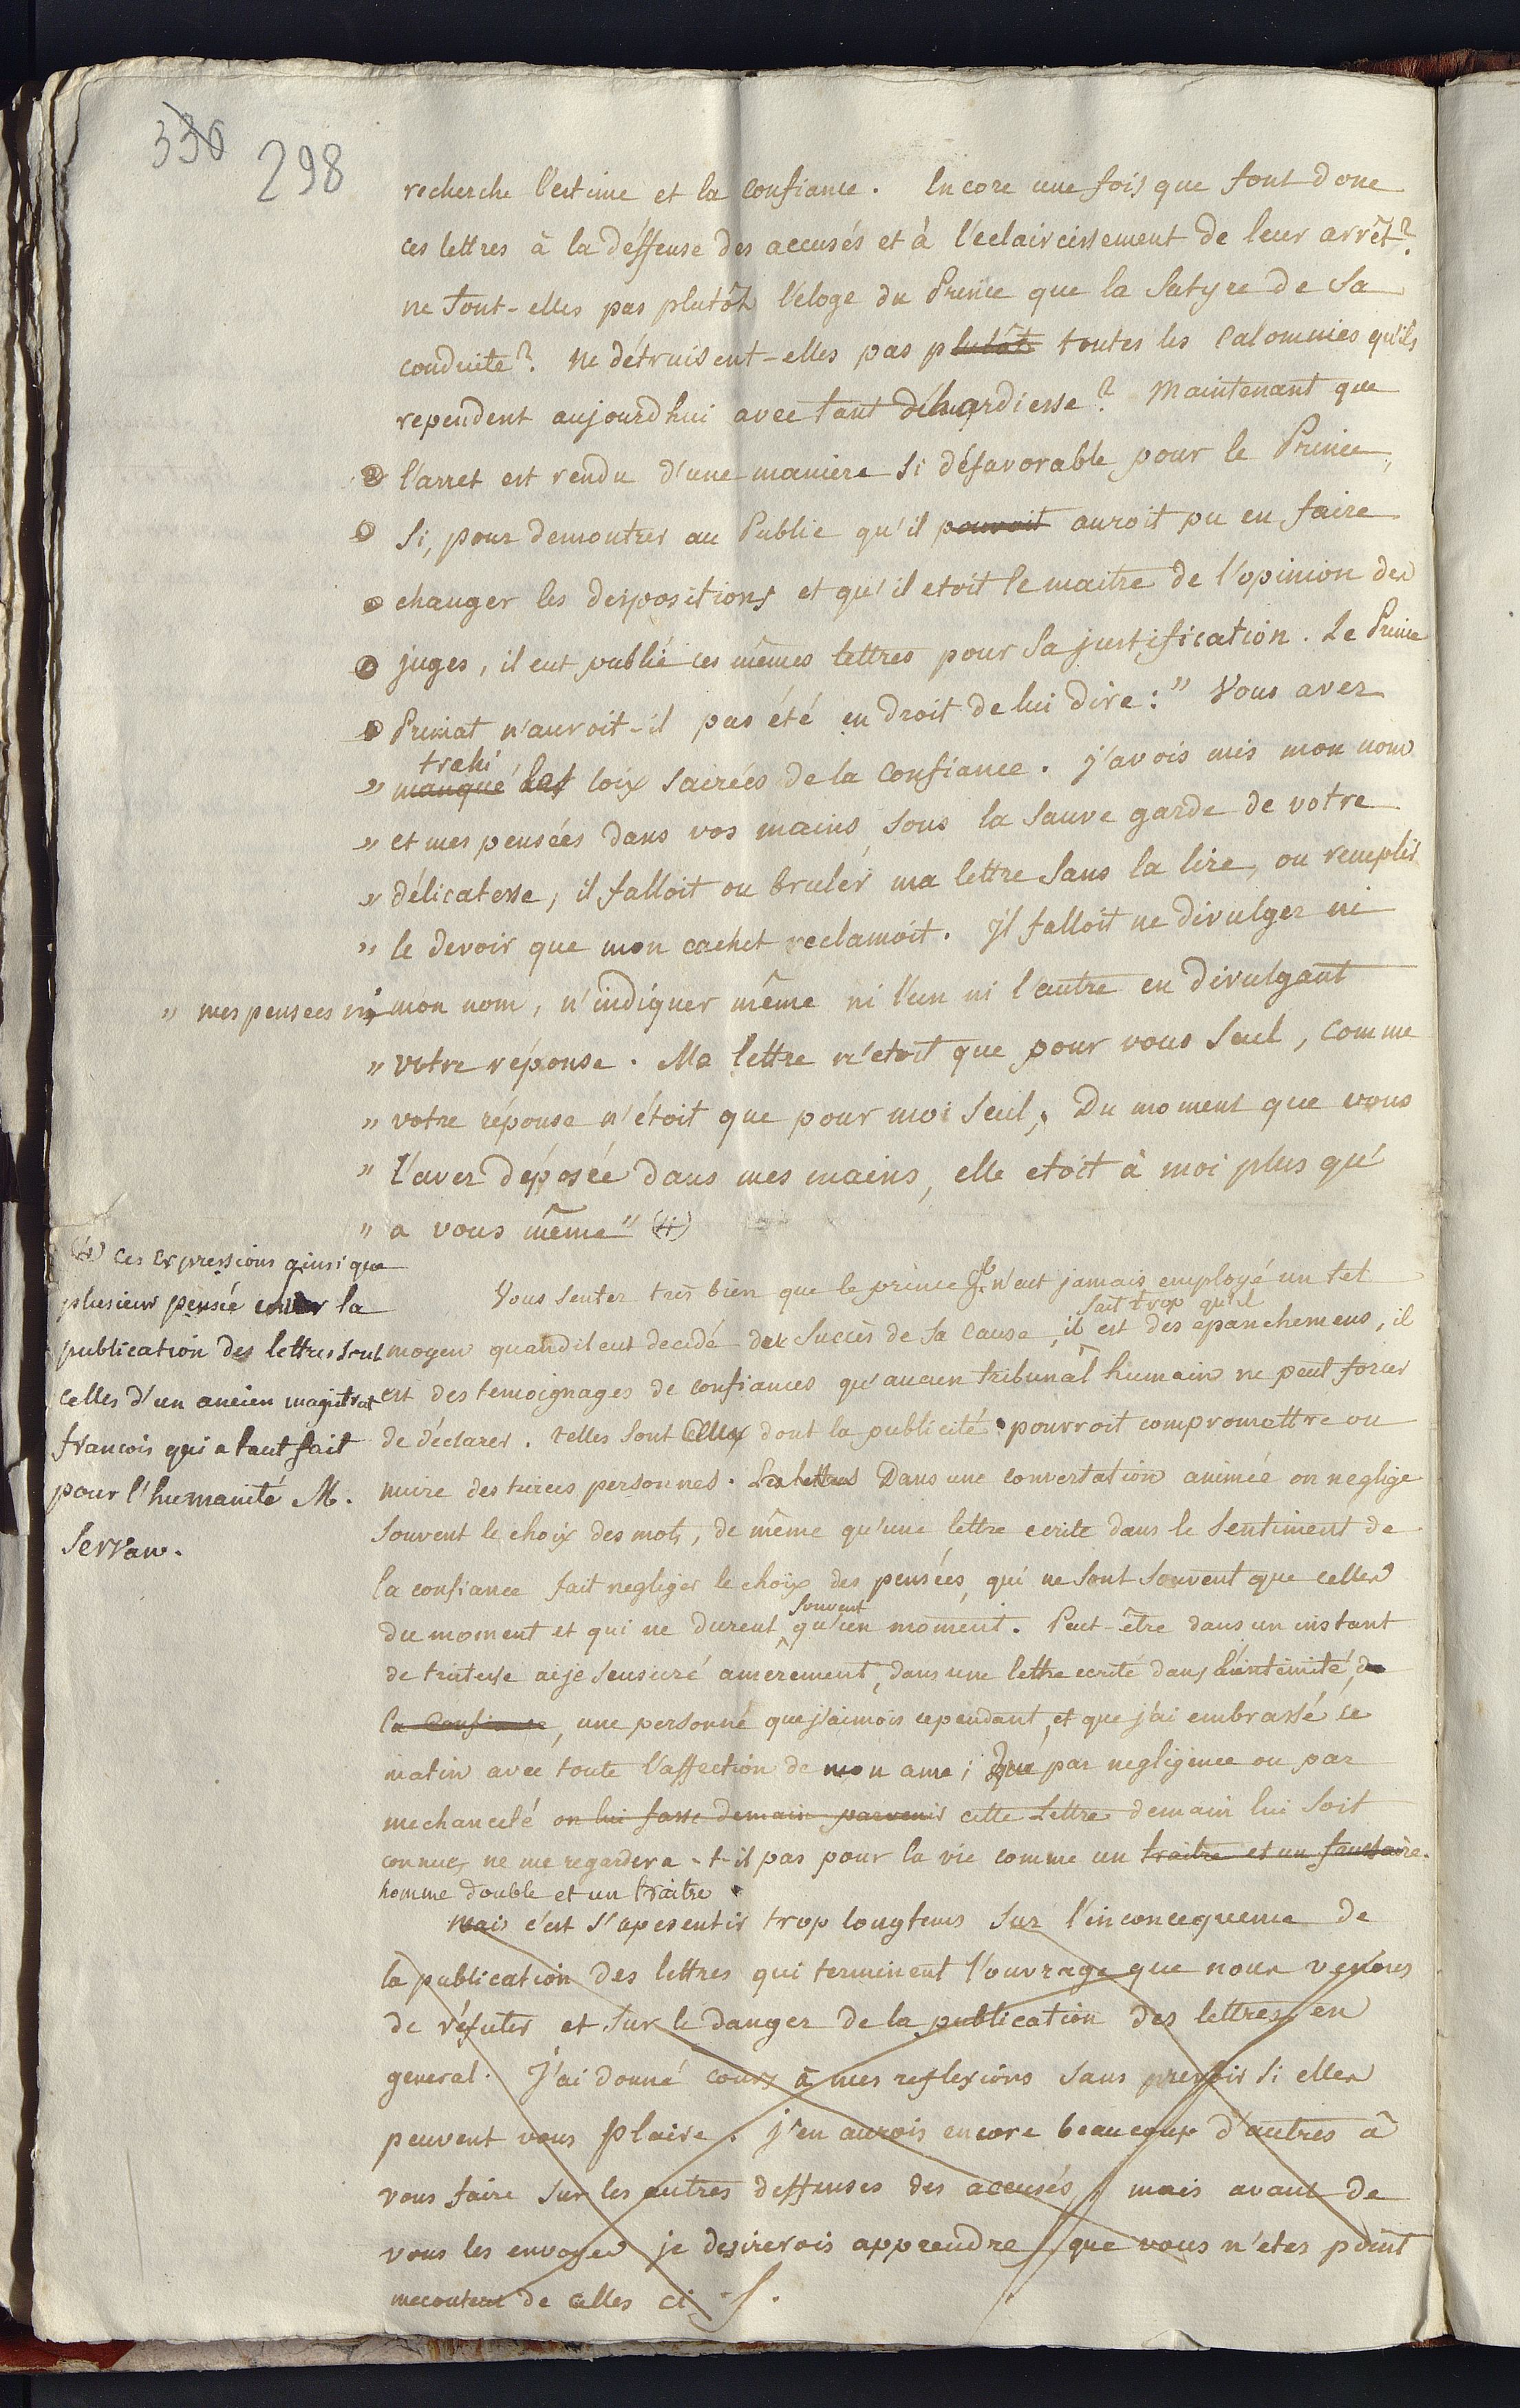 336 298
recherche l'estime et la confiance. Encore une fois que font donc
ces lettres à la déffense des accusés et à l'eclaircissement de leur arrêt?
ne sont-elles pas plutôt l'éloge du Prince que la Satyre de Sa
conduite? Ne détruisent-elles pas plutôt toutes les Calomnies qu'ils
rependent aujourdhui avec tant de hardiesse? Maintenant que
l'arret est rendu d'une maniere si défavorable pour le Prince,
Si, pour demontrer au Public qu'il pouvoit auroit pu en faire
changer les dispositions et qu'il etoit le maitre de l'opinion des
juges, il eut publié ces mêmes lettres pour sa justification. Le Prince
Primat n'auroit-il pas été en droit de lui dire: " Vous avez
trahi
" manqué les loix sacrées de la confiance. j'avois mis mon nom
" et mes pensées dans vos mains, sous la sauve garde de votre
" délicatesse, il falloit ou bruler ma lettre sans la lire, ou remplir
" le devoir que mon cachet reclamoit. Il falloit ne divulger ni
" mes pensees ni mon nom, n'indiquer même ni l'un ni l'autre en divulgant
" votre réponse. Ma lettre n'etoit que pour vous seul, comme
" votre réponse n'étoit que pour moi seul. Du moment que vous
" l'avez déposée dans mes mains, elle etoit à moi plus qu'
" a vous même"
Ces expressions ainsi que
plusieurs pensée la
publication des lettres sont
celles d'un ancien magistrat
francois qui a tant fait
pour l'humanité M.
Servan.
Vous sentez très bien que le prince n'eut jamais employé un tel
sait trop qu'il
moyen quand il eut decidé du Succès de sa cause, il est des épanchemens, il
est des temoignages de confiances qu'aucun tribunal humain ne peut forcer
de déclarer. telles sont celles dont la publicité pourroit compromettre ou
nuire des tierces personnes. Les lettres Dans une conversation animée on neglige
souvent le choix des mots, de même qu'une lettre ecrite dans le sentiment de
la confiance fait negliger le choix des pensées, qui ne sont souvent que celles
souvent
du moment et qui ne durent qu'un moment. Peut-être dans un instant
de tristesse aije sensuré amerement, dans une lettre ecrite dans l'intimité, de
la Confiance, une personne que j'aimois cependant, et que j'ai embrassé ce
matin avec toute l'affection de mon ame; Que par negligence ou par
mechanceté on lui fasse demain parvenir cette Lettre demain lui soit
connue, ne me regardera-t-il pas pour la vie comme un traitre et un faussaire.
homme double et un traitre
Mais c'est s'apesentir trop longtems sur l'inconcequence de
la publication des lettres qui terminent l'ouvrage que nous venons
de réfuter et sur le danger de la publication des lettres en
general. J'ai donné cours à mes reflexions sans prevoir si elles
peuvent vous plaire. j'en aurois encore beaucoup d'autres à
vous faire sur les autres deffenses des accusés, mais avant de
vous les envoyer je desirerois apprendre que vous n'etes point
mecontent de celles ci.